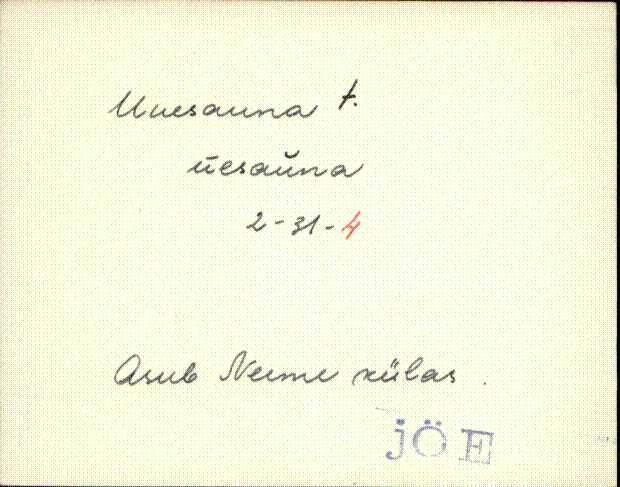 Uuesauna t.
ūesaŭna
2-31-4
Asub Neeme külas.
JÖE